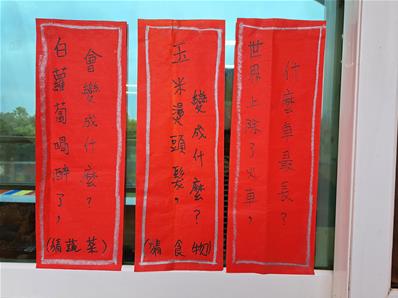 白蘿蔔喝醉了，
會變成什麼？
(猜蔬菜)
玉米燙頭髮，
變成什麼？
(猜食物)
世界上除了火車，
什麼車最長？